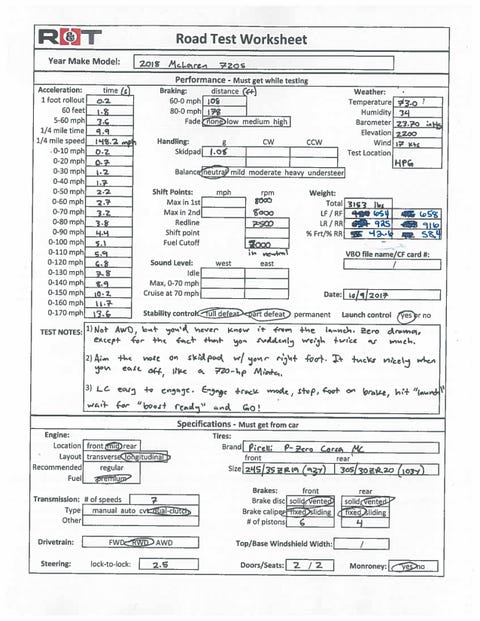 R&T Road Test Worksheet
Year Make Model: 2018 McLaren 720S
Performance - Must get while testing
Acceleration: time (s)
1 foot rollout 0.2
60 feet 1.8
5-60 mph 3.6
1/4 mile time 9.9
1/4 mile speed 148.2 mph
0-10 mph 0.2
0-20 mph 0.7
0-30 mph 1.2
0-40 mph 1.7
0-50 mph 2.2
0-60 mph 2.7
0-70 mph 3.2
0-80 mph 3.8
0-90 mph 4.4
0-100 mph 5.1
0-110 mph 5.9
0-120 mph 6.8
0-130 mph 7.8
0-140 mph 8.9
0-150 mph 10.2
0-160 mph 11.7
0-170 mph 13.6
Braking: distance (ft)
60-0 mph 108
80-0 mph 178
Fade none low medium high
Handling: g CW CCW
Skidpad 1.05
Balance neutral mild moderate heavy understeer
Shift Points: mph rpm
Max in 1st 8000
Max in 2nd 8000
Redline
Shift point
Fuel Cutoff 8000
in neutral
Sound Level: west east
Idle
Max, 0-70 mph
Cruise at 70 mph
Weather:
Temperature 73.0
Humidity 34
Barometer 27.70 inHg
Elevation 2200
Wind 17 kts
Test Location HPG
Weight:
Total 3153 lbs
LF / RF 654 658
LR / RR 925 916
% Frt/% RR 42.6 58.4
VBO file name/CF card #:
/
Date: 10/9/2017
Stability control: full defeat part defeat permanent Launch control yes or no
TEST NOTES: 1) Not AWD, but you'd never know it from the launch. Zero drama,
except for the fact that you suddenly weigh twice as much.
2) Aim the nose on skidpad w/ your right foot. It tucks nicely when
you ease off, like a 720-hp Miata.
3) LC easy to engage. Engage track mode, stop, foot on brake, hit "launch"
wait for "boost ready" and GO!
Specifications - Must get from car
Engine:
Location front mid rear
Layout transverse longitudinal
Recommended regular
Fuel premium
Tires:
Brand Pirelli P-Zero Corsa MC
front rear
Size 245/35ZR19 (93Y) 305/30ZR20 (103Y)
Transmission: # of speeds 7
Type manual auto cvt dual-clutch
Other
Brakes: front rear
Brake disc solid vented solid vented
Brake caliper fixed sliding fixed sliding
# of pistons 6 4
Drivetrain: FWD RWD AWD
Top/Base Windshield Width: /
Steering: lock-to-lock: 2.5
Doors/Seats: 2 / 2
Monroney: yes no